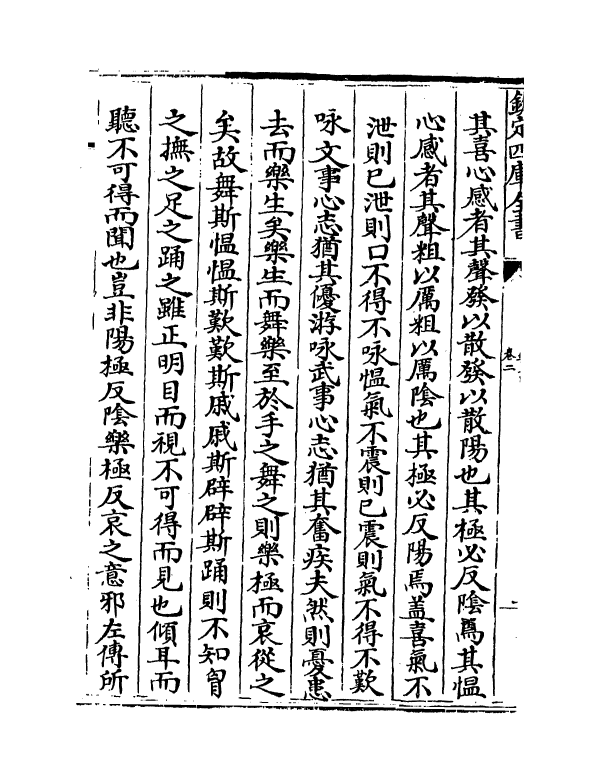 欽定四庫全書
卷二
二
其喜心感者其聲發以散發以散陽也其極必反陰焉其愠
心感者其聲粗以厲粗以厲陰也其極必反陽焉盖喜氣不
泄則已泄則口不得不咏愠氣不震則已震則氣不得不歎
咏文事心志猶其優游咏武事心志猶其奮疾夫然則憂患
去而樂生矣樂生而舞樂至於手之舞之則樂極而哀從之
矣故舞斯愠愠斯歎歎斯戚戚斯辟辟斯踊則不知胷
之撫之足之踊之雖正明目而視不可得而見也傾耳而
聽不可得而聞也豈非陽極反陰樂極反哀之意邪左傳所